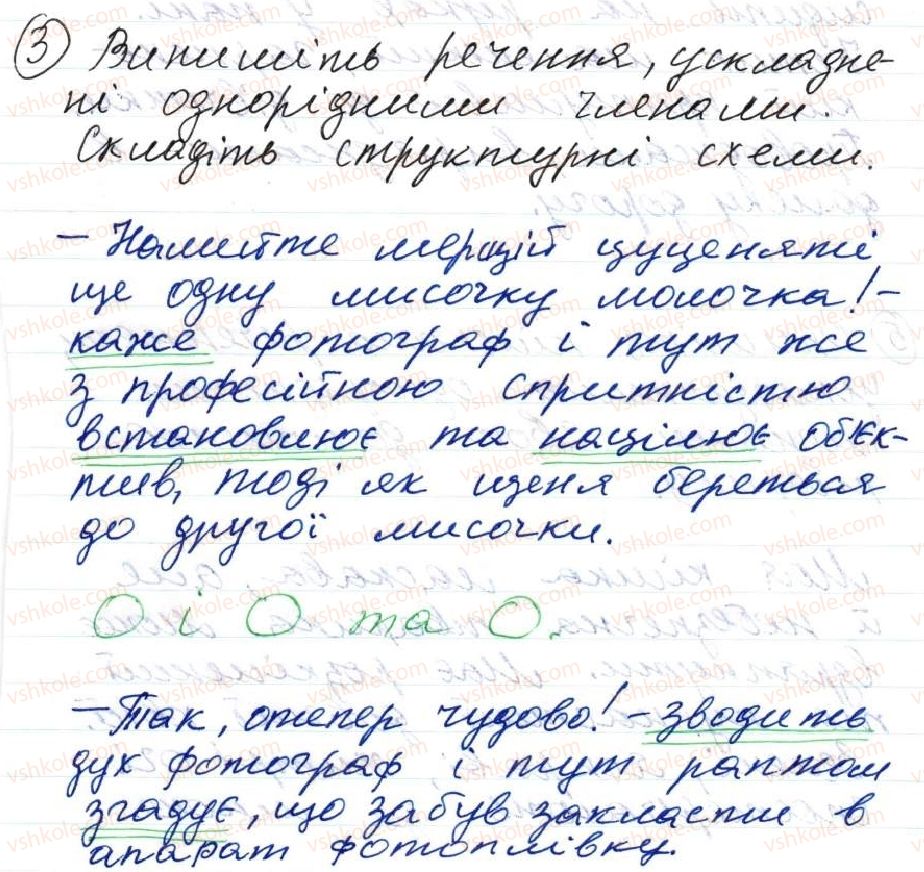 ③ Випишіть речення, ускладне-
ні однорідними членами.
Складіть структурні схеми.
– Налийте мерщій цуценяті
ще одну мисочку молочка! –
каже фотограф і тут же
з професійною спритністю
встановлює та націлює об'єк-
тив, тоді як щеня береться
до другої мисочки.
О і О та О.
– Так, отепер чудово! – зводить
дух фотограф і тут раптом
згадує, що забув закласти в
апарат фотоплівку.
vshkole.com